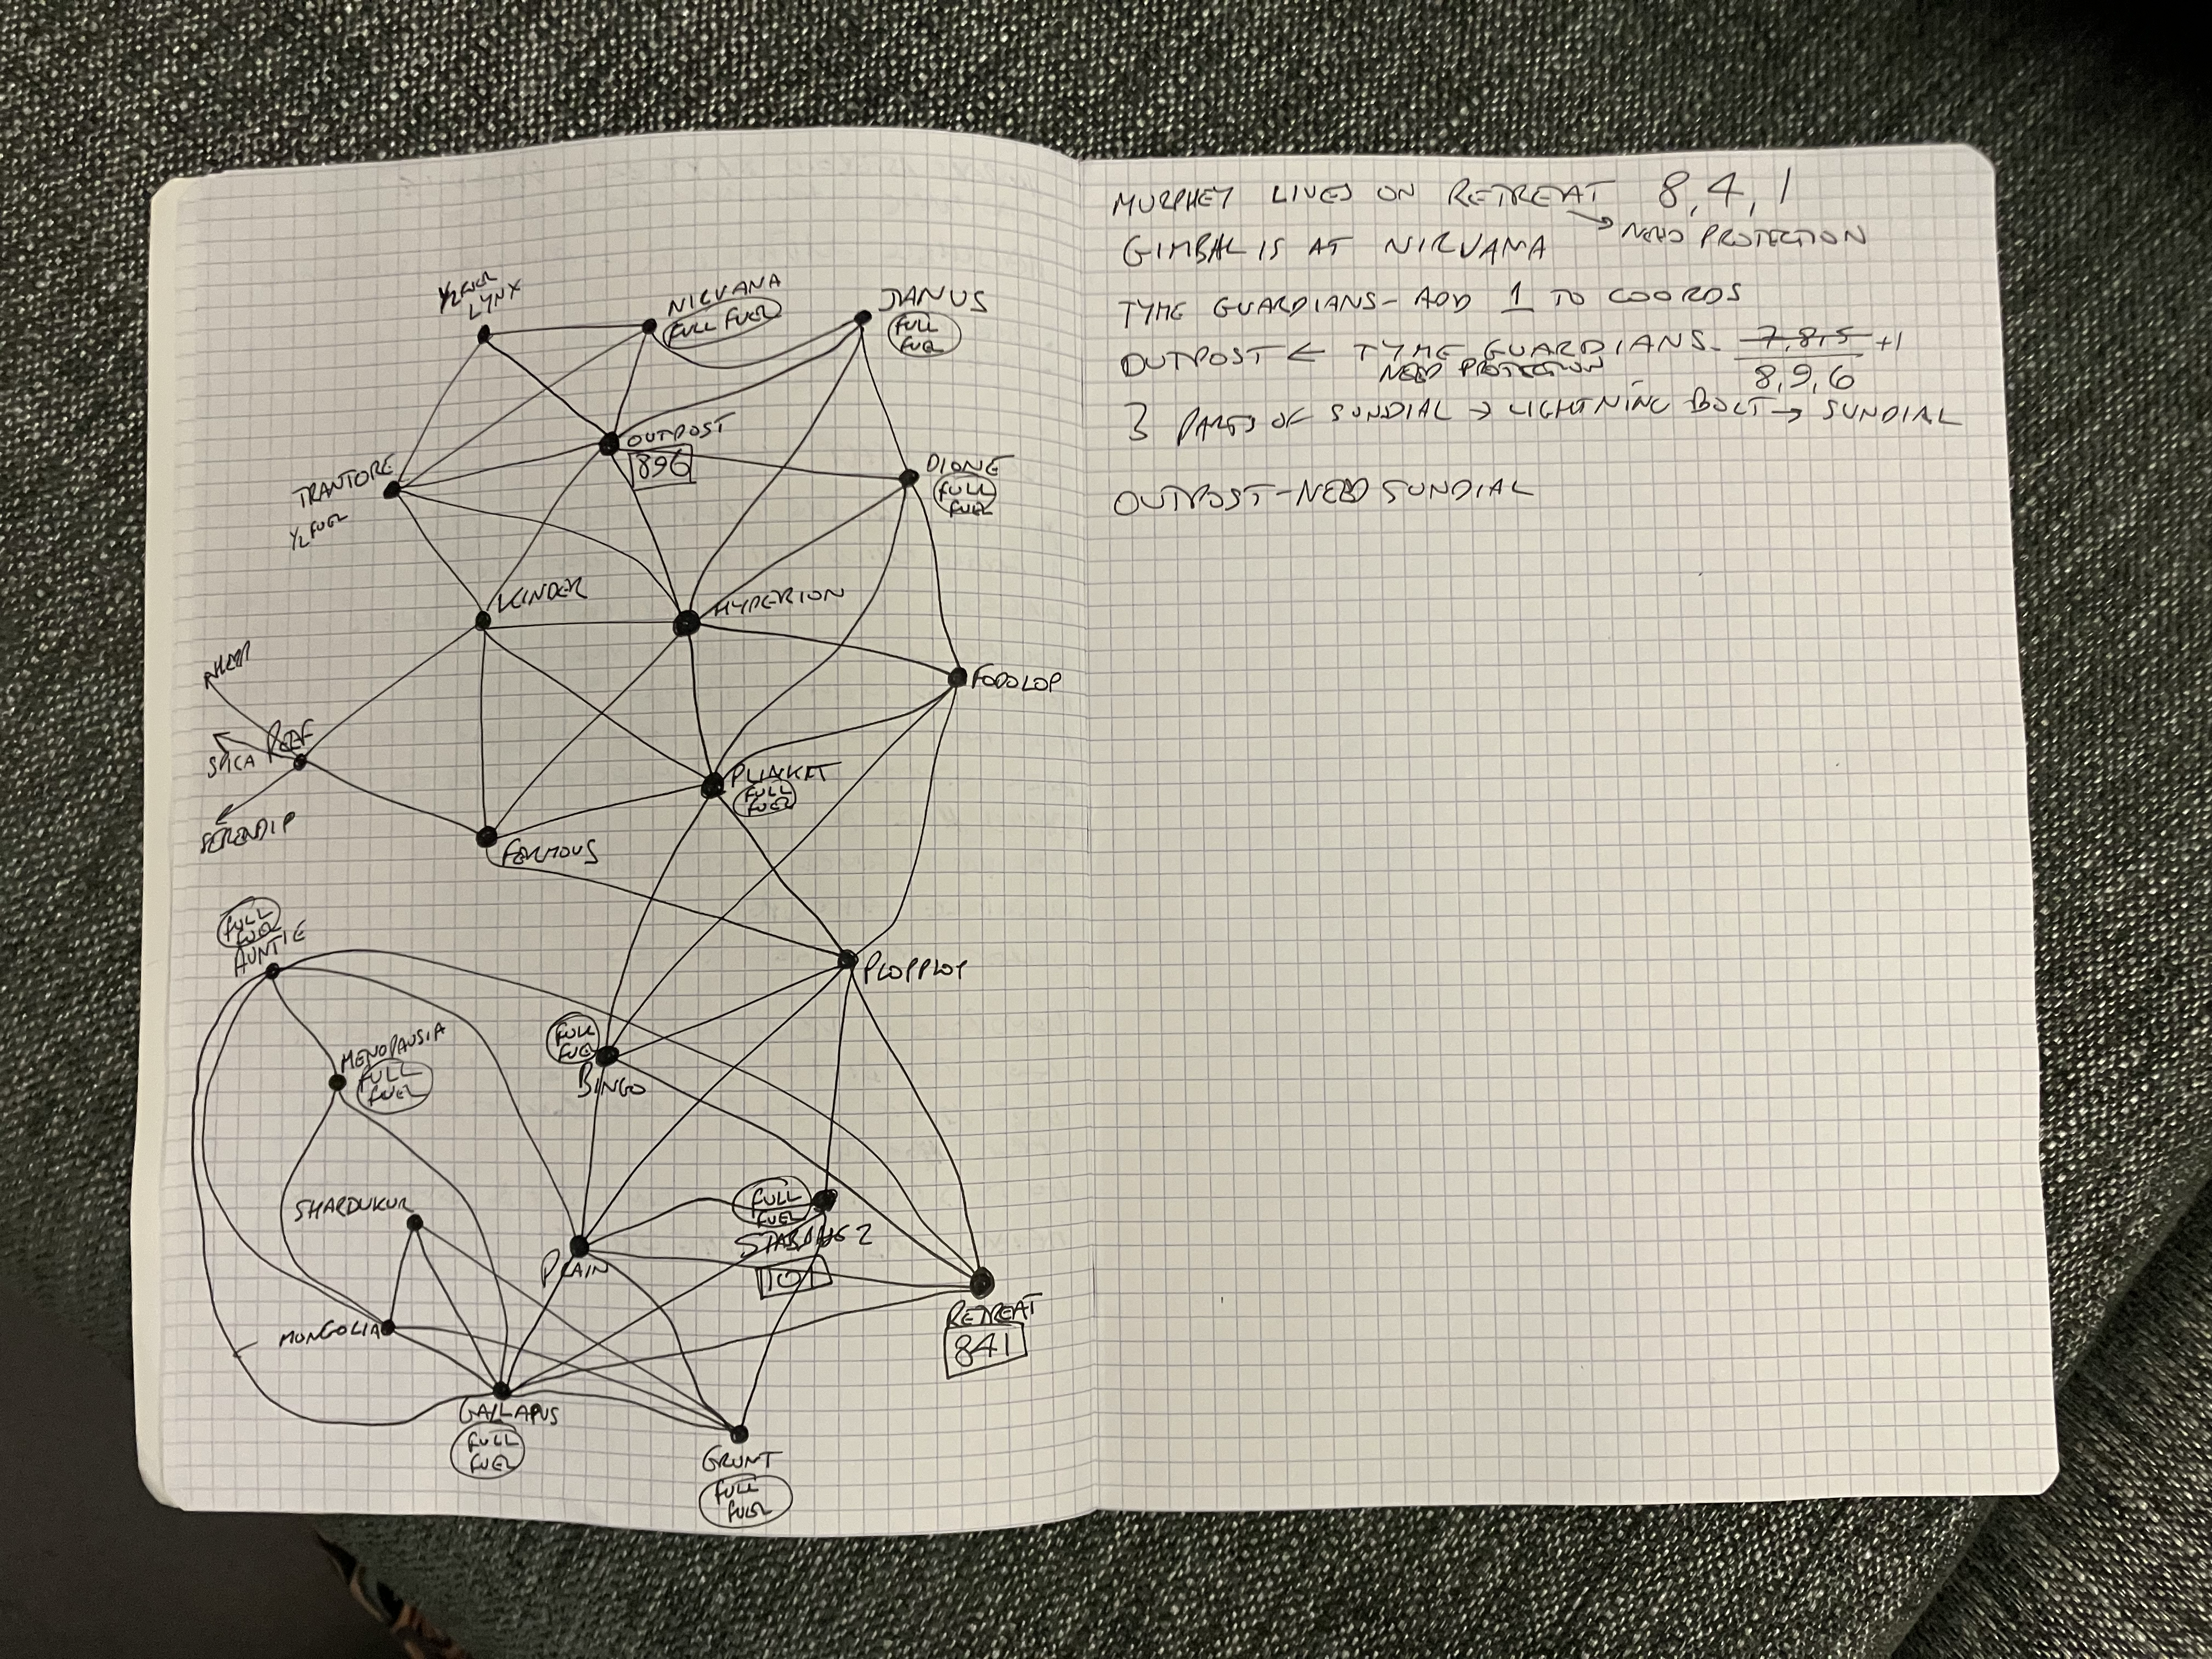 ½ FUEL
LYNX
NIRVANA
FULL FUEL
JANUS
FULL
FUEL
OUTPOST
896
TRANTORE
½ FUEL
DIONE
FULL
FUEL
KINDER
HYPERION
FODOLOP
REEF
SPICA
SERENDIP
PLUNKET
FULL
FUEL
FORMOUS
FULL
FUEL
AUNTIE
PLOPPLOP
MENOPAUSIA
FULL
FUEL
FULL
FUEL
BINGO
SHARDUKUR
FULL
FUEL
STARDUS 2
101
PLAIN
MONGOLIA
RETREAT
841
GALLAPUS
FULL
FUEL
GRUNT
FULL
FUEL
MURPHEY LIVES ON RETREAT 8,4,1
→ NEED PROTECTION
GIMBAL IS AT NIRVANA
TYME GUARDIANS - ADD 1 TO COORDS
OUTPOST ← TYME GUARDIANS - 7,8,5 +1
NEED PROTECTION
8,9,6
3 PARTS OF SUNDIAL → LIGHTNING BOLT → SUNDIAL
OUTPOST - NEED SUNDIAL